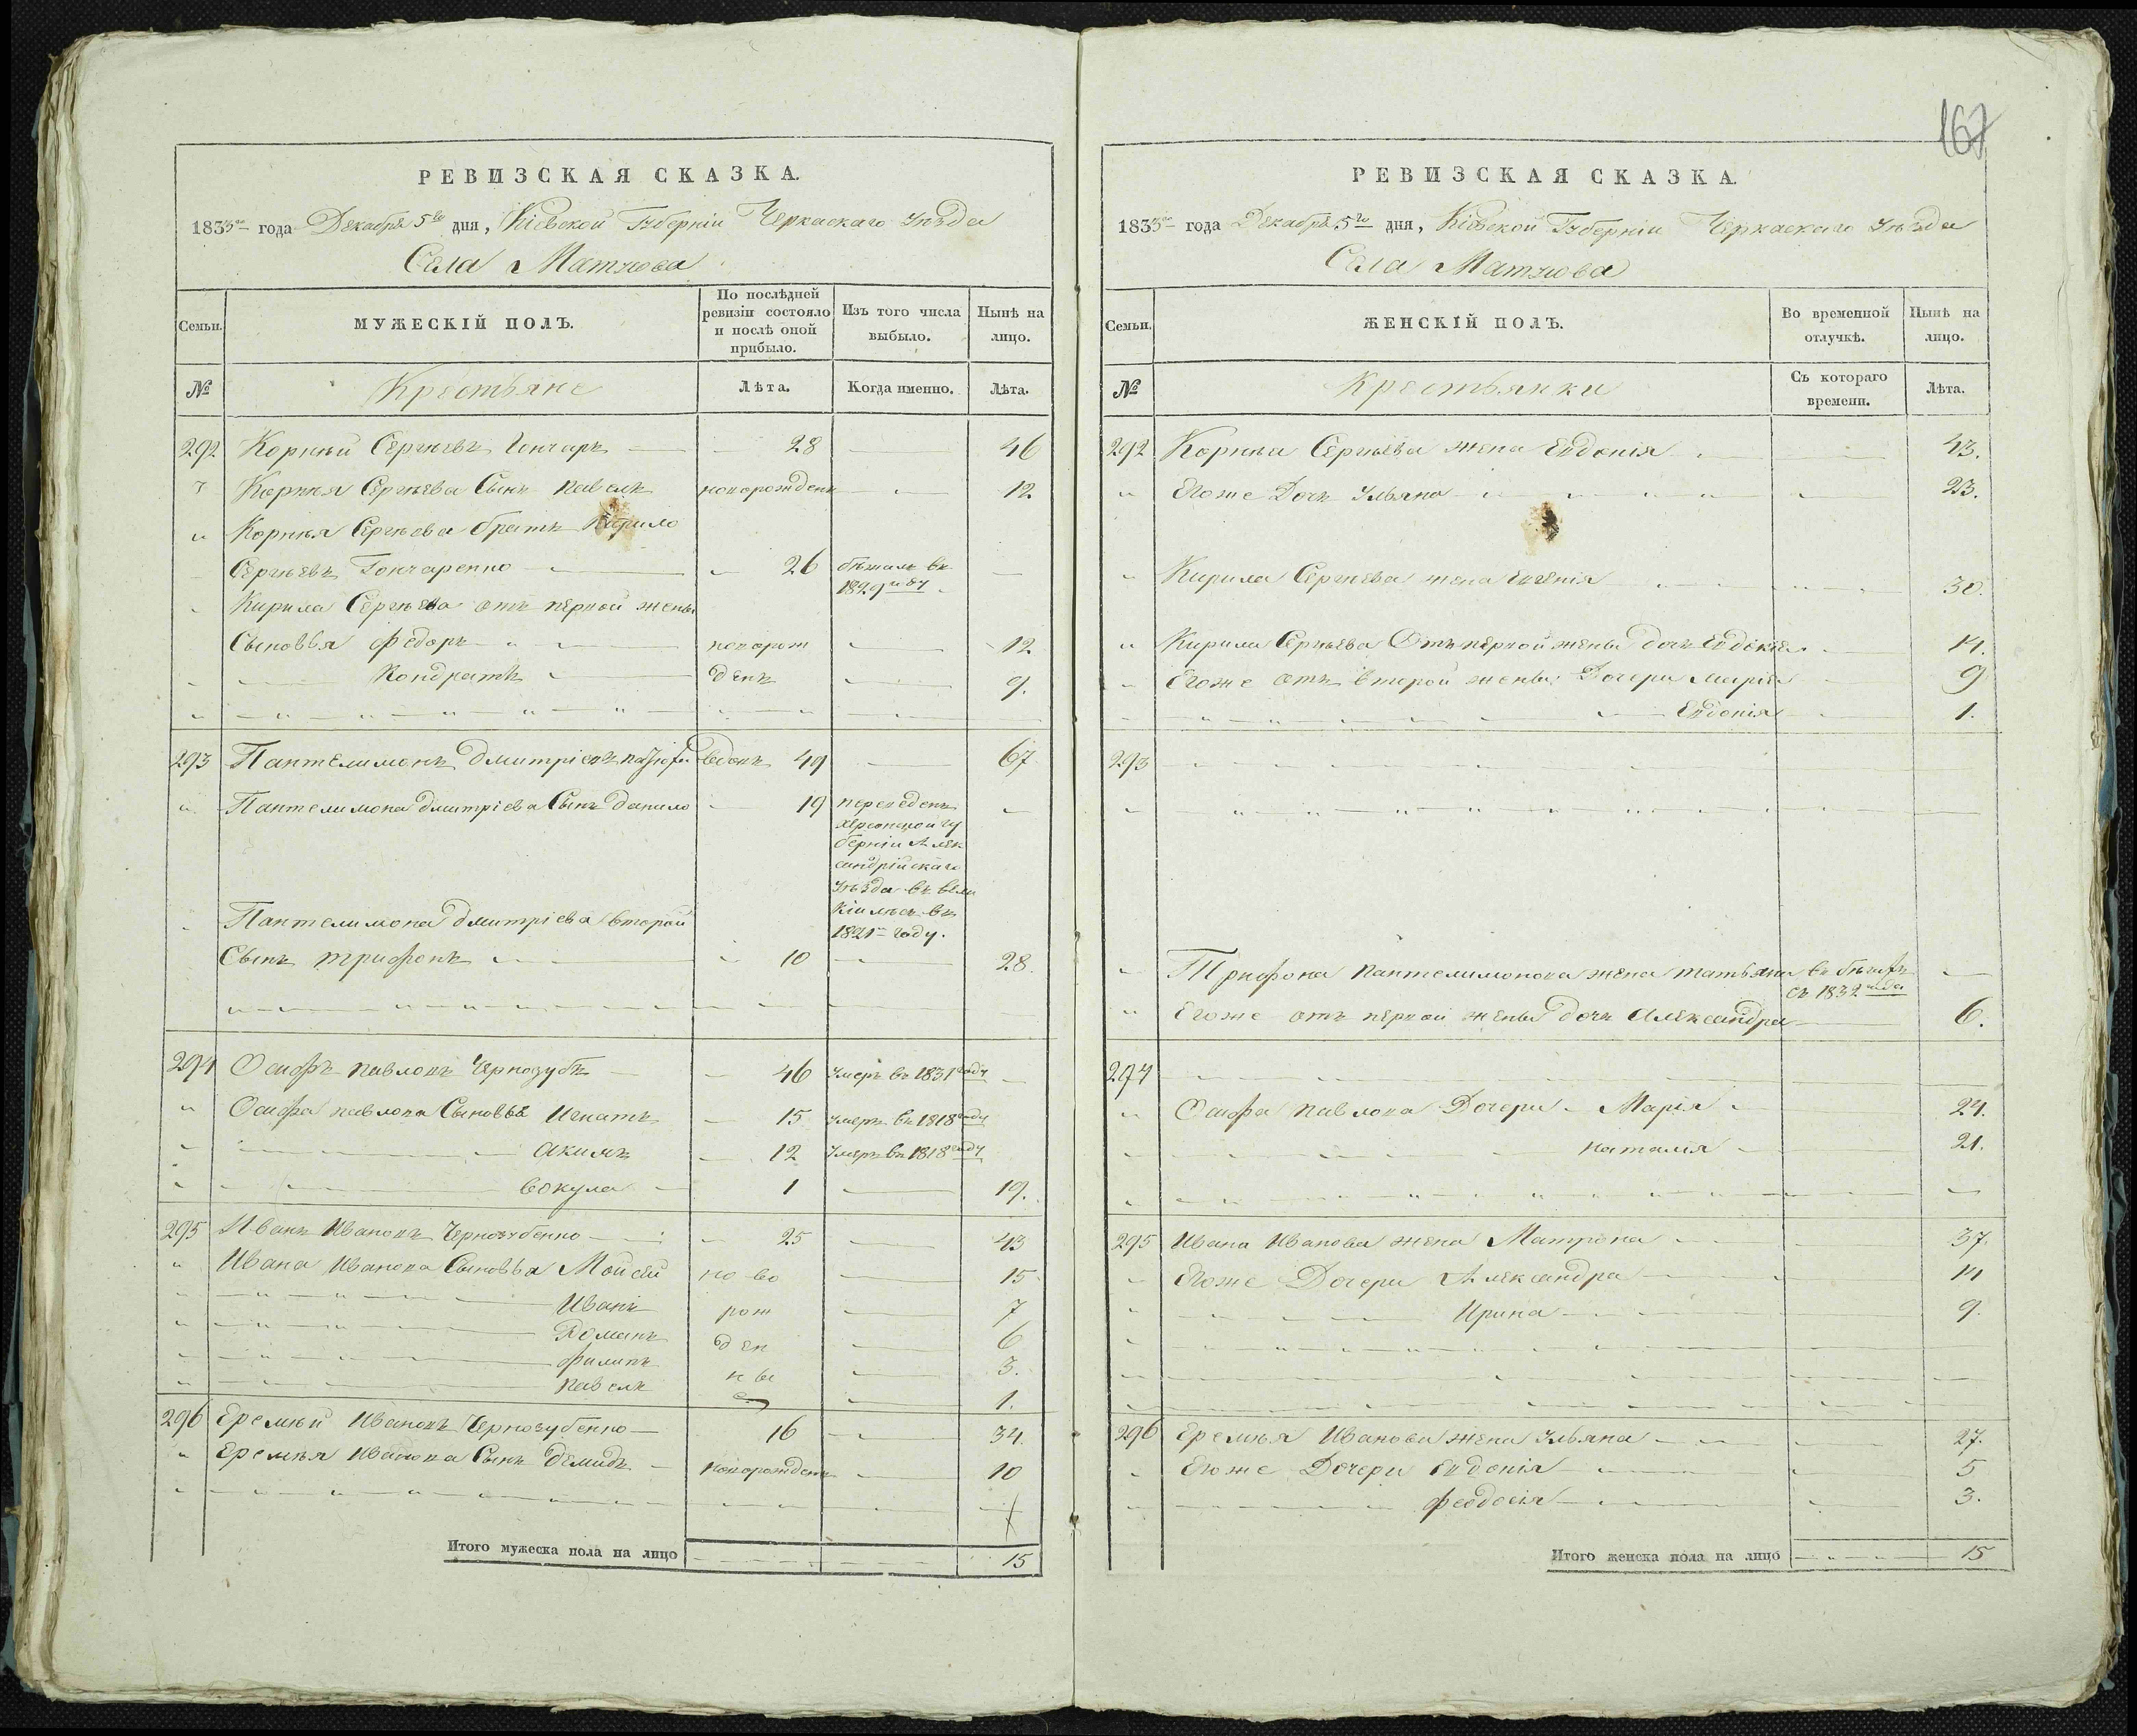 167
РЕВИЗСКАЯ СКАЗКА.
1835го года Декабря 5го дня, Кіевской Губерніи Черкаскаго Уѣзда
Села Матусова
Семьи.
МУЖЕСКІЙ ПОЛЪ.
По послѣдней ревизіи состояло и послѣ оной прибыло.
Изъ того числа выбыло.
Нынѣ на лицо.
№ Крестьяне Лѣта. Когда именно. Лѣта.
292 Корнѣй Сергѣевъ Гончаръ 28 46
Корнѣя Сергѣева Сынъ Павелъ новорожденъ 12
Корнѣя Сергѣева братъ Кирило
Сергѣевъ Гончаренко 26 бѣжалъ въ
1829 году
Кирила Сергѣева отъ первой жены
Сыновья Федоръ новорож 12
Кондратъ денъ 9.
293 Пантелимонъ Дмитріевъ 49 67
Пантелимона Дмитріева Сынъ Данило 19 переведенъ
Херсонской гу
берніи Алек
сандрійскаго
Уѣзда въ Вели
Пантелимона Дмитріева второй
1821м году.
Сынъ Трифонъ 10 28.
294 Осифъ Павловъ Чернозубъ 46 умеръ въ 1831 году
Осифа Павлова Сыновья Игнатъ 15 умеръ въ 1818 году
Акимъ 12 умеръ въ 1818 году
Вокула 1 19.
295 Иванъ Ивановъ Чернозубенко 25 43
Ивана Иванова Сыновья Мойсей но во 15
Иванъ рож 7
Романъ ден 6
Филипъ 3.
Павелъ 1.
296 Еремѣй Ивановъ Чернозубенко 16 34.
Еремѣя Иванова Сынъ Демидъ новорожденъ 10
Итого мужеска пола на лицо 15
РЕВИЗСКАЯ СКАЗКА.
1835го года Декабря 5го дня, Кіевской Губерніи Черкаскаго Уѣзда
Села Матусова
Семьи.
ЖЕНСКІЙ ПОЛЪ.
Во временной отлучкѣ.
Нынѣ на лицо.
№ Крестьянки Съ котораго времени. Лѣта.
292 Корнѣя Сергѣева жена Евдокія 43.
Егоже Дочь Ульяна 23.
Кирила Сергѣева жена Евгенія 30.
Кирила Сергѣева Отъ первой жены дочь Евдокія 14.
Егоже отъ второй жены Дочери Марія 9
Евдокія 1.
293
Трифона Пантелимонова жена Татьяна въ бѣгахъ
съ 1832 года
Егоже отъ первой жены дочь Александра 6.
294
Осифа Павлова Дочери Марія 24.
Наталія 21.
295 Ивана Иванова жена Матрона 37.
Егоже Дочери Александра 14
Ирина 9.
296 Еремѣя Иванова жена Ульяна 27.
Егоже Дочери Евдокія 5
Феодосія 3.
Итого женска пола на лицо 15